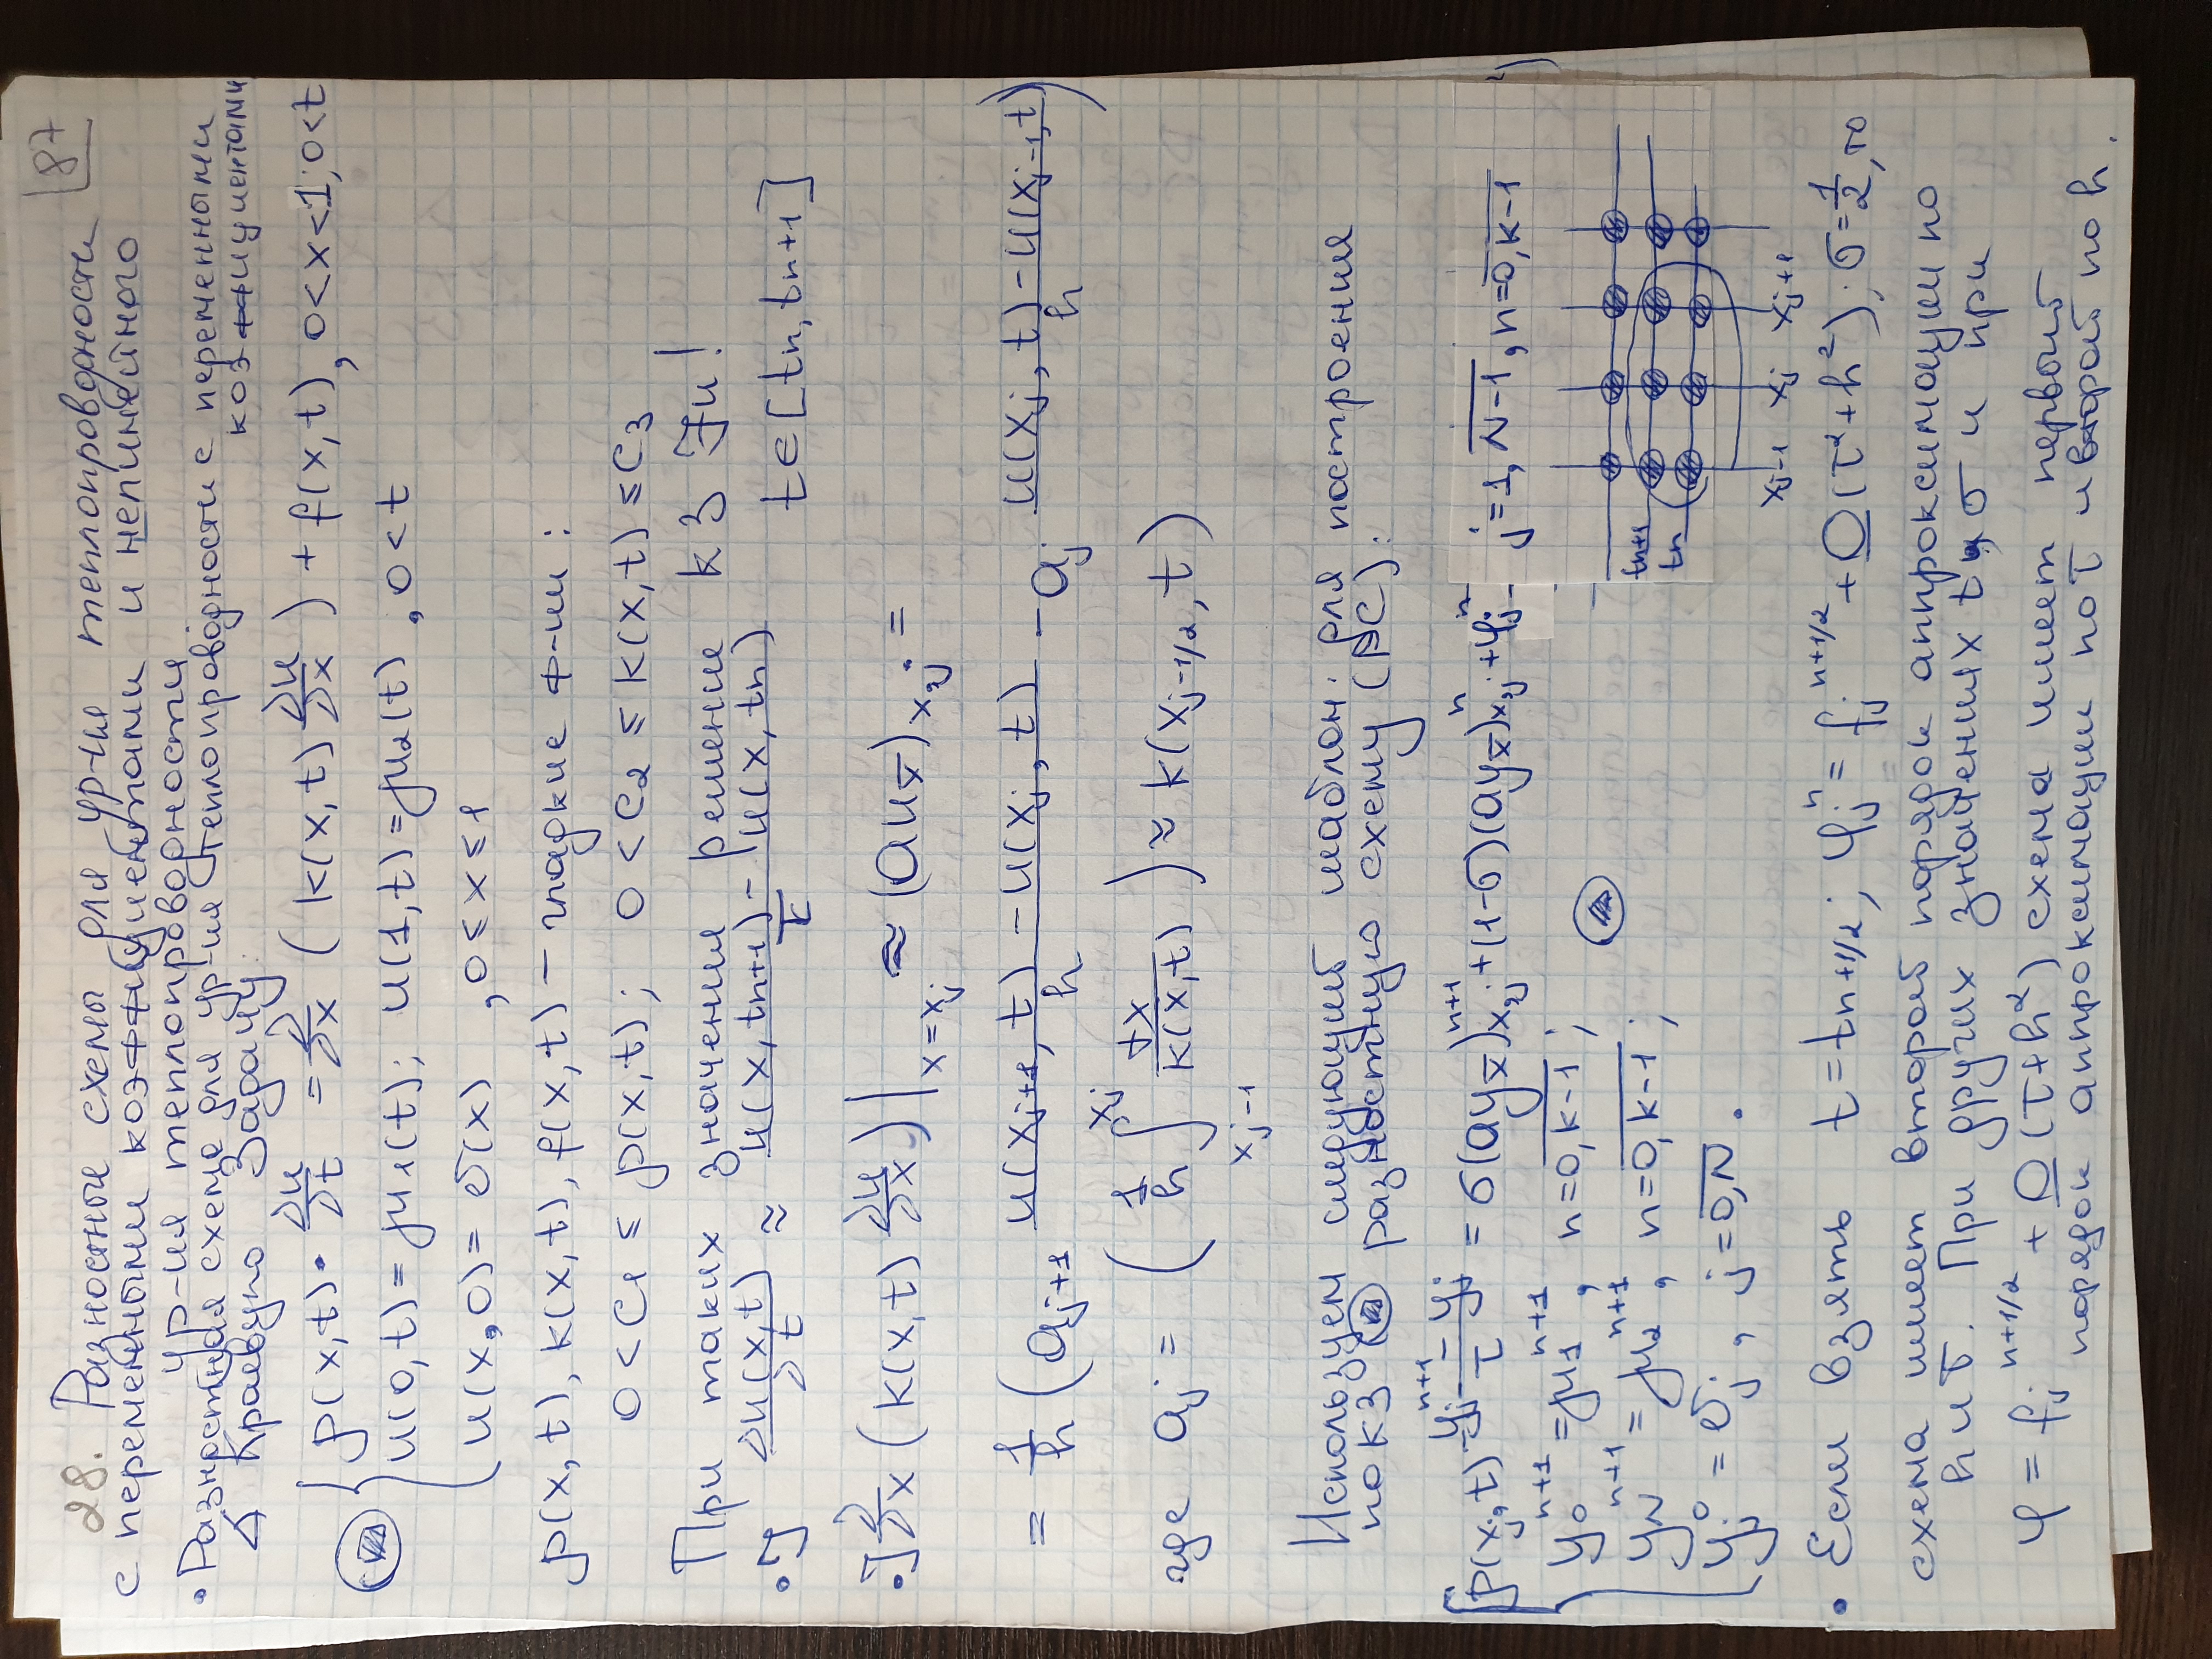 28. Разностные схемы для ур-ия теплопроводности |87
с переменными коэффициентами и нелинейного
ур-ия теплопроводности
• Разностная схема для ур-ия теплопроводности с переменными коэффициентами
Δ Краевую задачу:
p(x,t)·∂u/∂t = ∂/∂x (k(x,t) ∂u/∂x) + f(x,t), 0<x<1; 0<t
u(0,t) = μ₁(t); u(1,t) = μ₂(t), 0<t
u(x,0) = σ(x) , 0≤x≤1
p(x,t), k(x,t), f(x,t) – гладкие ф-ии:
0 < c₁ ≤ p(x,t); 0 < c₂ ≤ k(x,t) ≤ c₃
При таких значениях решение кз ∃и!
• ∃ ∂u(x,t)/∂t ≈ (u(x,tn+1) - u(x,tn))/τ t∈[tn, tn+1]
• ∃ ∂/∂x (k(x,t) ∂u/∂x)|x=xj ≈ (au x̄)x,j =
= 1/h (aj+1 (u(xj+1,t) - u(xj,t))/h - aj (u(xj,t) - u(xj-1,t))/h)
где aj = (1/h ∫ xj-1 xj dx/k(x,t)) ≈ k(xj-1/2, t)
Используем следующий шаблон для построения
по кз разностную схему (РС):
p(xj,t) (yj^n+1 - yj^n)/τ = σ(ay x̄)x,j^n+1 + (1-σ)(ay x̄)x,j^n + φj^n j=1,N-1, n=0,k-1
y0^n+1 = μ1^n+1, n=0,k-1;
yN^n+1 = μ2^n+1, n=0,k-1;
yj^0 = σj, j=0,N.
tn+1
tn
xj-1 xj xj+1
• Если взять t = tn+1/2; φj^n = fj^n+1/2 + O(τ²+h²); σ=1/2, то
схема имеет второй порядок аппроксимации по
h и τ. При других значениях t, σ и при
φ = fj^n+1/2 + O(τ+h²) схема имеет первый
порядок аппроксимации по τ и второй по h.